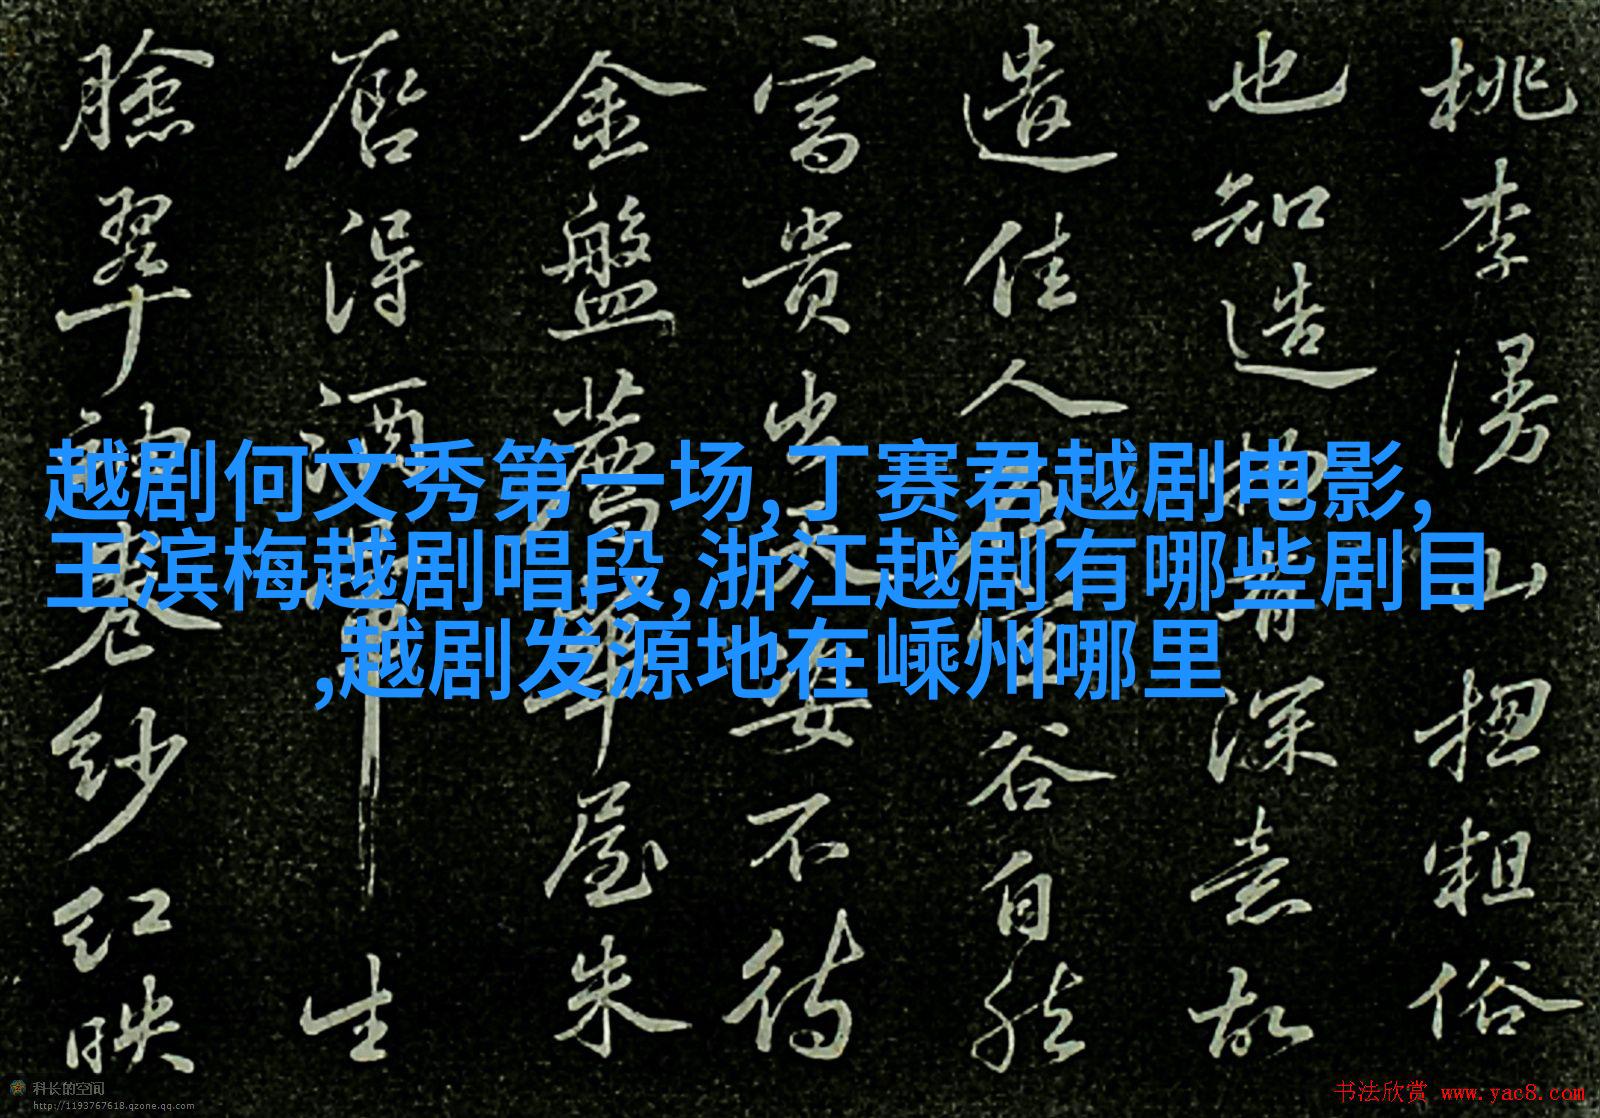 越剧何文秀第一场,丁赛君越剧电影,
王滨梅越剧唱段,浙江越剧有哪些剧目
,越剧发源地在嵊州哪里
桃李漫山揔粗俗
也知造物有深意故
遣佳人在空谷自然
富貴出天姿不待
金盤薦華屋朱
唇得酒暈生
臉翠袖卷紗紅映
科长的空间
http://1193767618.qzone.qq.com
书法欣赏 www.yac8.com